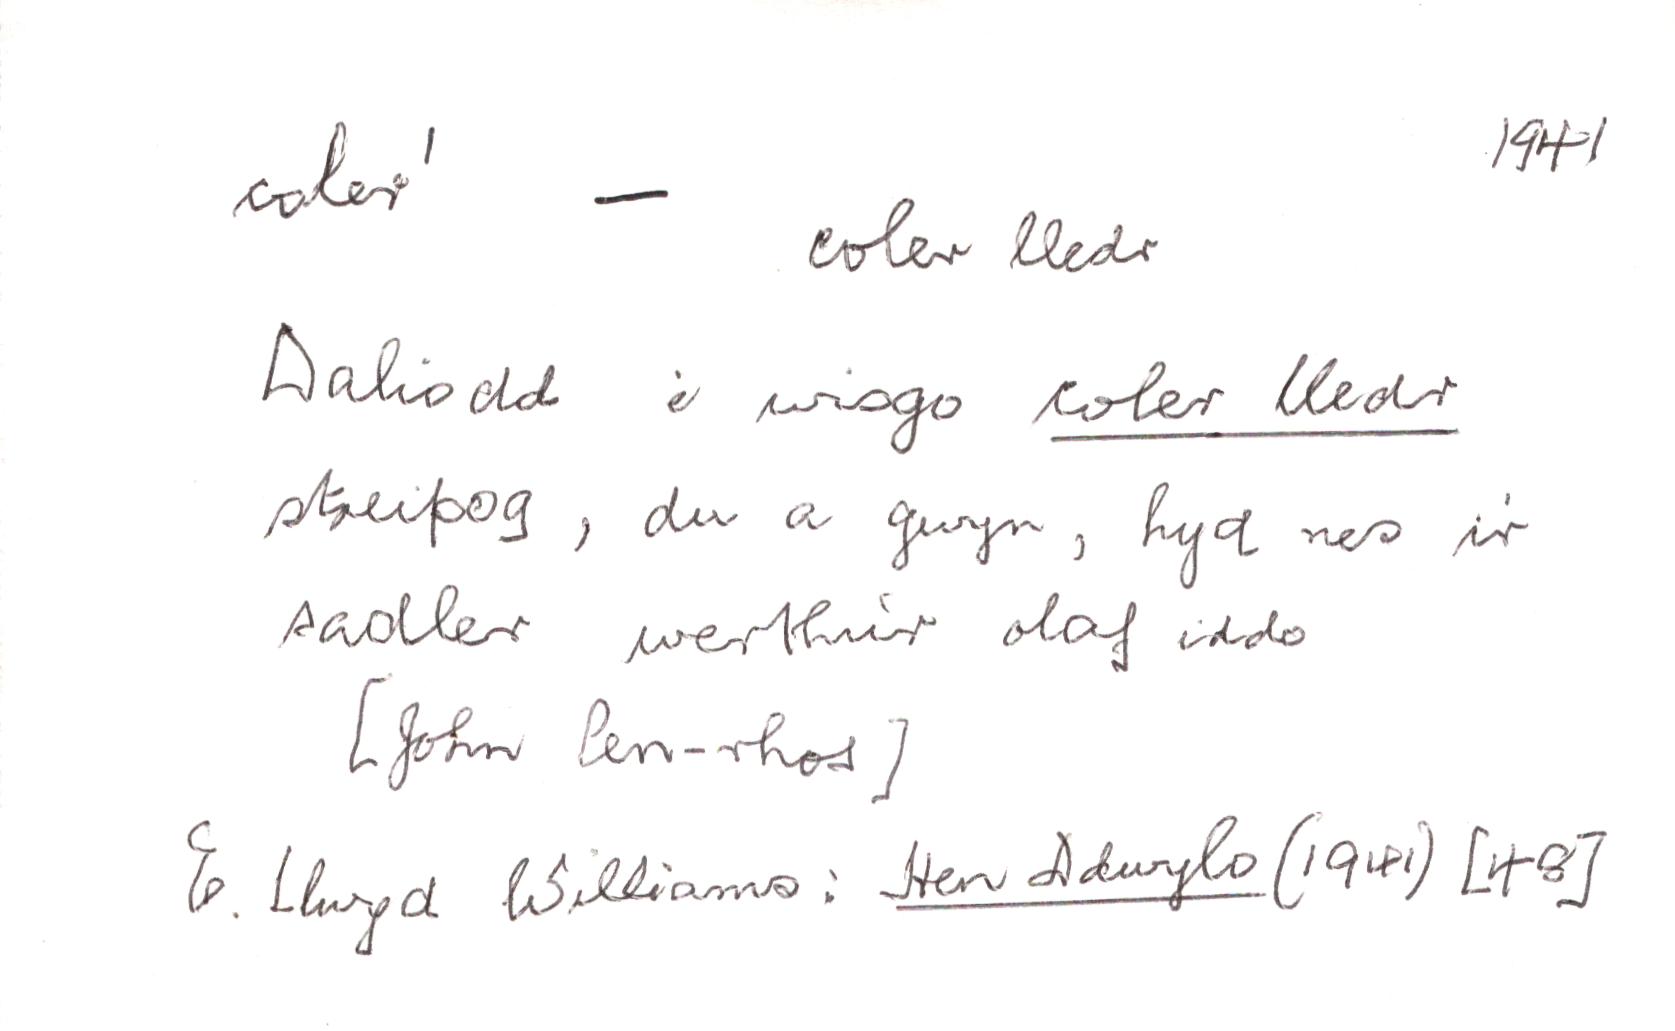 coler¹ — 1941
coler lledr
Daliodd i wisgo coler lledr
streipog, du a gwyn, hyd nes i'r
sadler werthu'r olaf iddo
[John Pen-rhos]
E. Llwyd Williams: Hen Ddwylo (1941) [48]